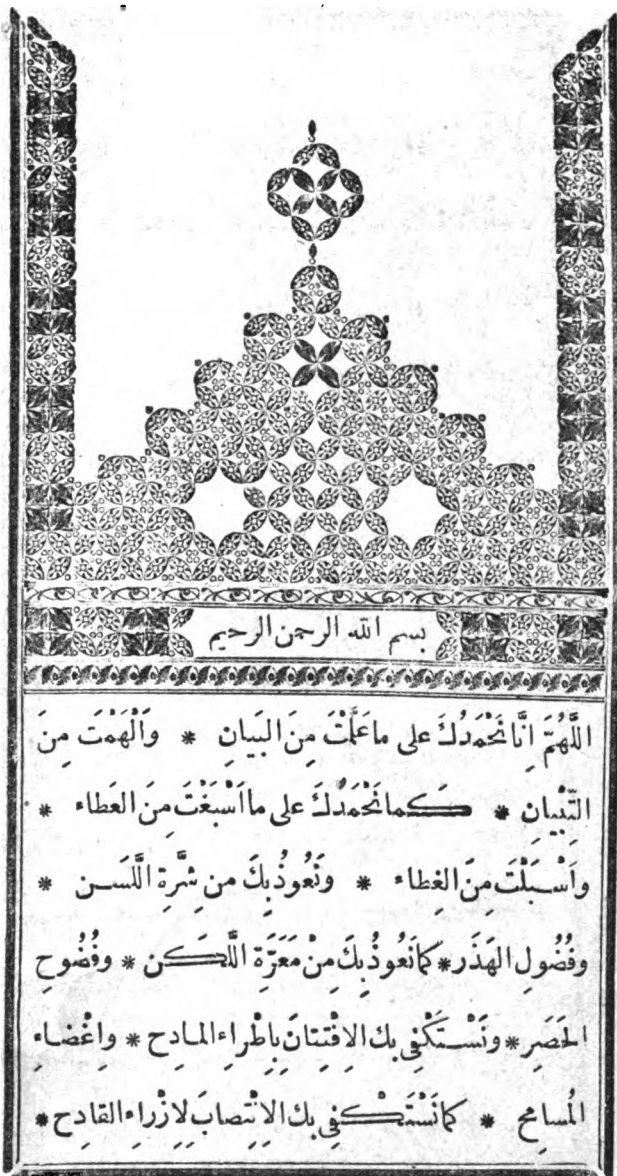 بسم الله الرحمن الرحيم
اللَّهُمَّ اِنَّا نَحْمَدُكَ على ما عَلَّمْتَ مِنَ البَيانِ * وَاَلْهَمْتَ مِنَ
التِّبْيانِ * كما نَحْمَدُكَ على ما اَسْبَغْتَ مِنَ العَطاء *
واَسْبَلْتَ مِنَ الغِطاء * ونَعُوذُ بِكَ من شِرَّةِ اللَّسَن *
وفُضُولِ الهَذَر * كما نَعُوذُ بِكَ مِنْ مَعَرَّةِ اللَّكَن * وفُضُوحِ
الحَصَرِ * ونَسْتَكْفِى بك الاِفْتِتانَ بِاِطْراءِ المادِح * واِغْضاءِ
المُسامِح * كما نَسْتَكْفِى بك الاِنْتِصابَ لِاِزْراء القادِح *